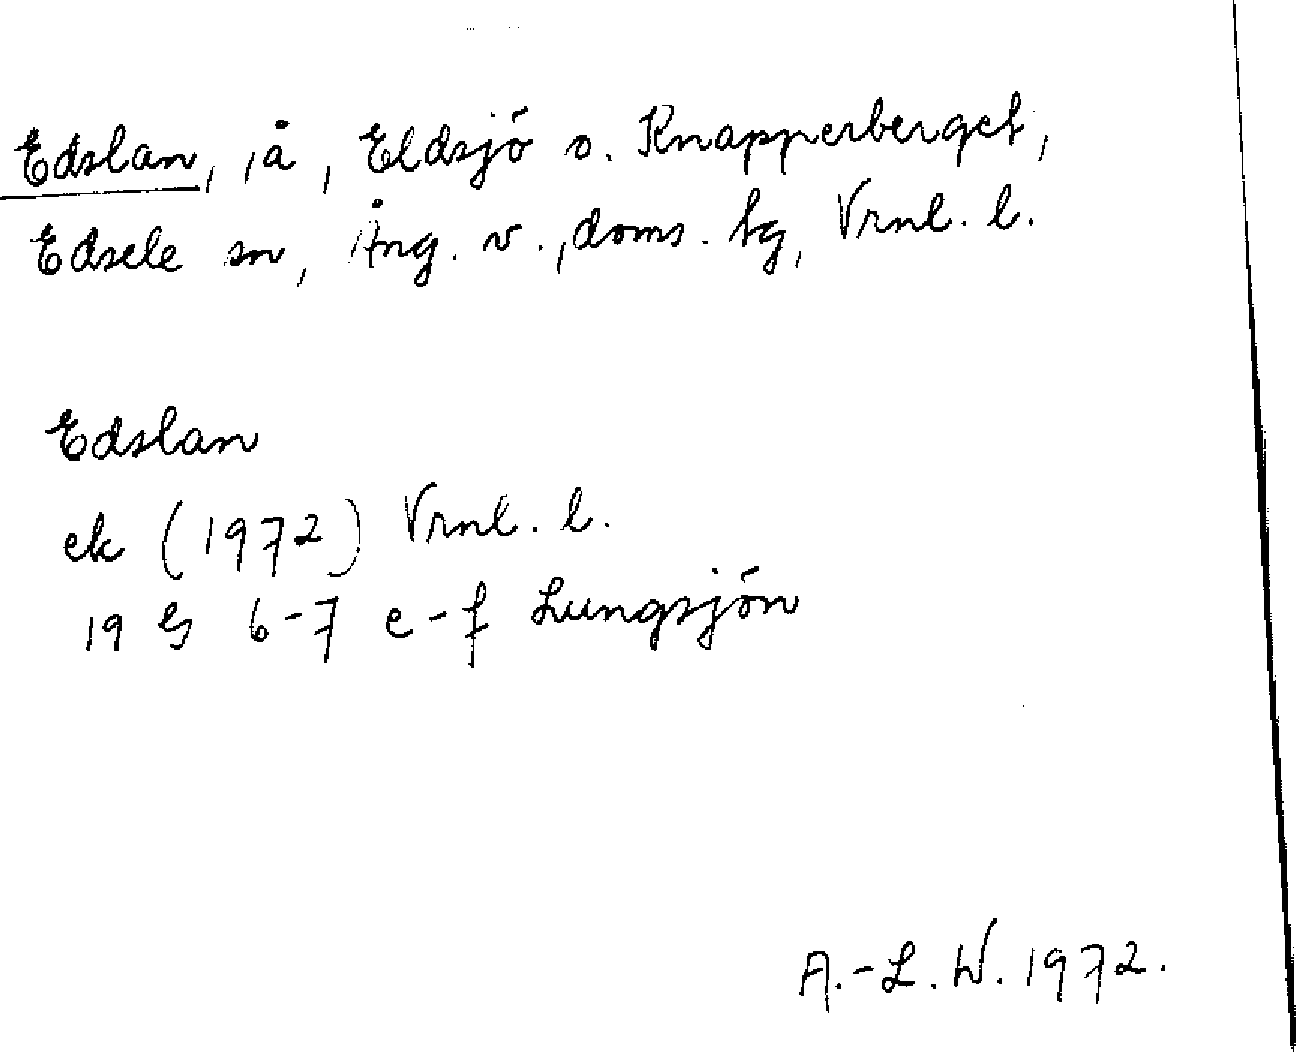 Edslan, å, Eldsjö o. Knapperberget,
Edsele sn, Ång. v., doms. tg, Vrnl. l.
Edslan
ek (1972) Vrnl. l.
19 G 6-7 e-f Lungsjön
A.-L. W. 1972.